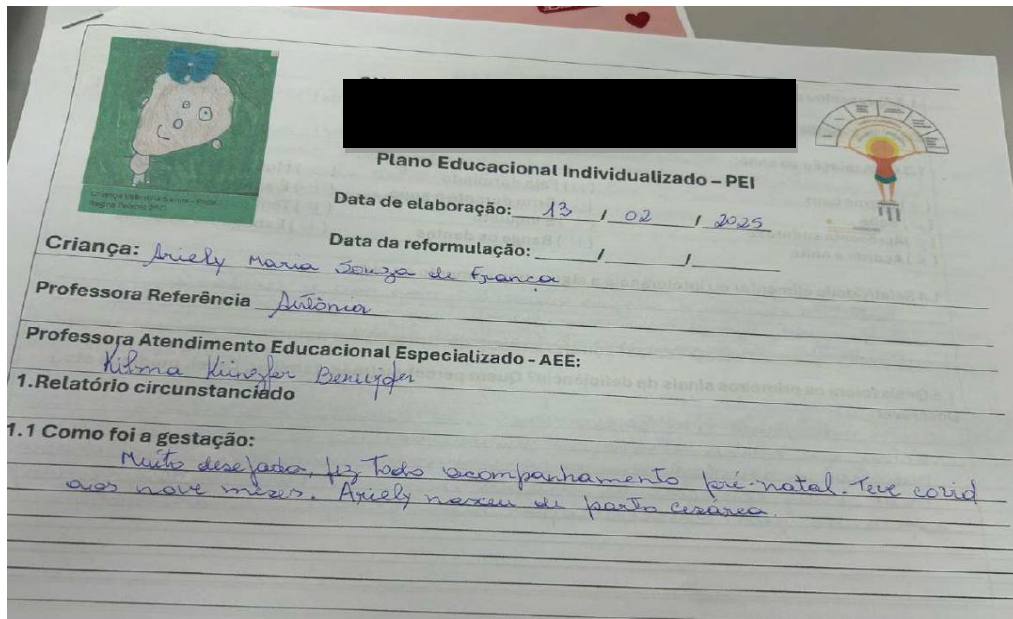 Plano Educacional Individualizado – PEI
Data de elaboração: 13 / 02 / 2025
Data da reformulação: ____/____/____
Criança: Ariely Maria Souza de França
Professora Referência Antônia
Professora Atendimento Educacional Especializado - AEE:
Kilma
1.Relatório circunstanciado
1.1 Como foi a gestação:
Muito desejada, fiz todo acompanhamento pré-natal. Teve covid
aos nove mezes. Ariely nasceu de parto cesárea.